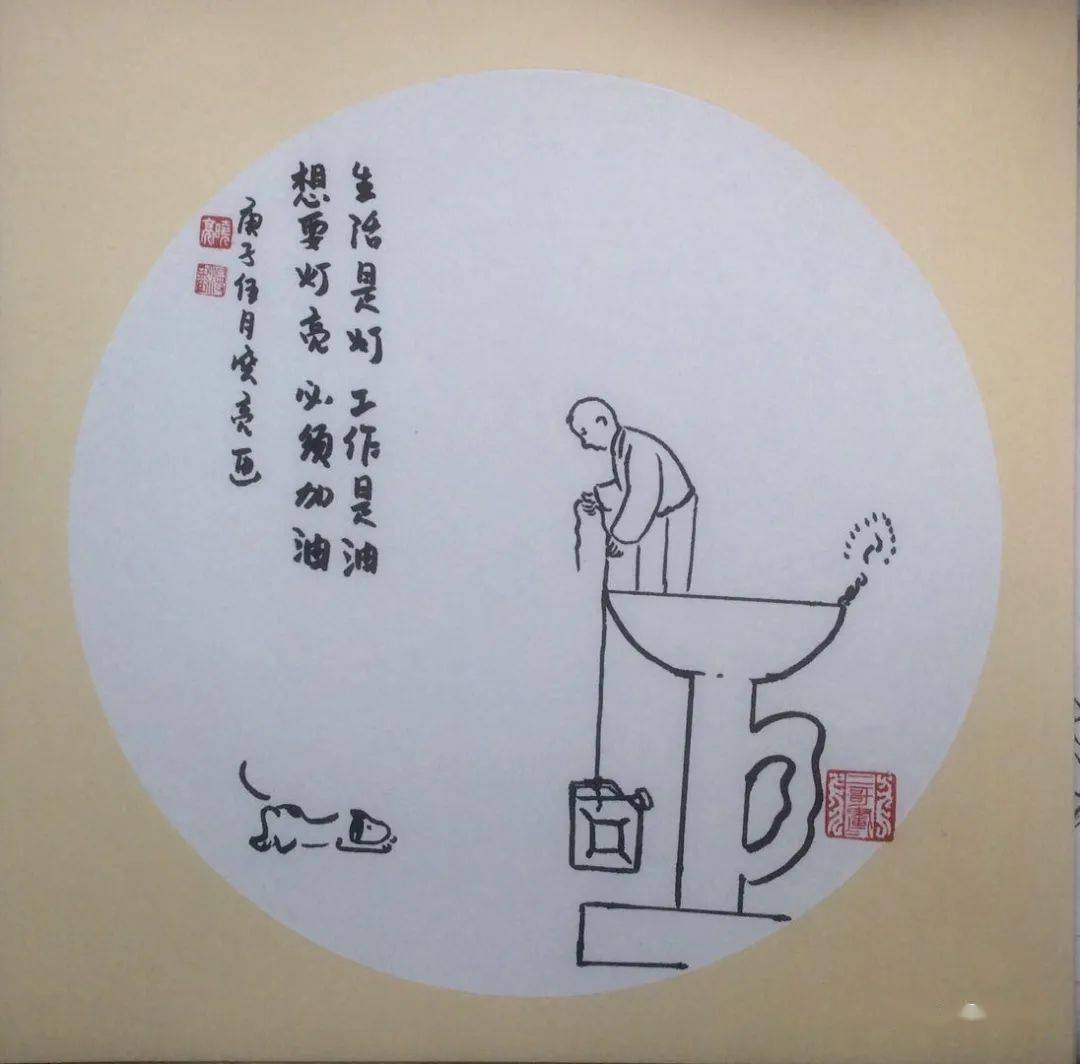 生活是灯 工作是油
想要灯亮 必须加油
庚子伍月宝亮画
三哥画